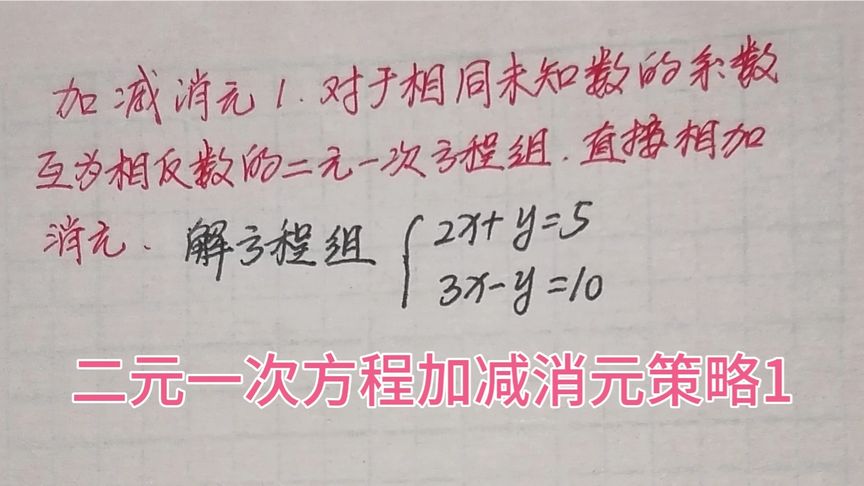 加减消元1.对于相同未知数的系数
互为相反数的二元一次方程组.直接相加
消元. 解方程组 { 2x+y=5
3x-y=10
二元一次方程加减消元策略1